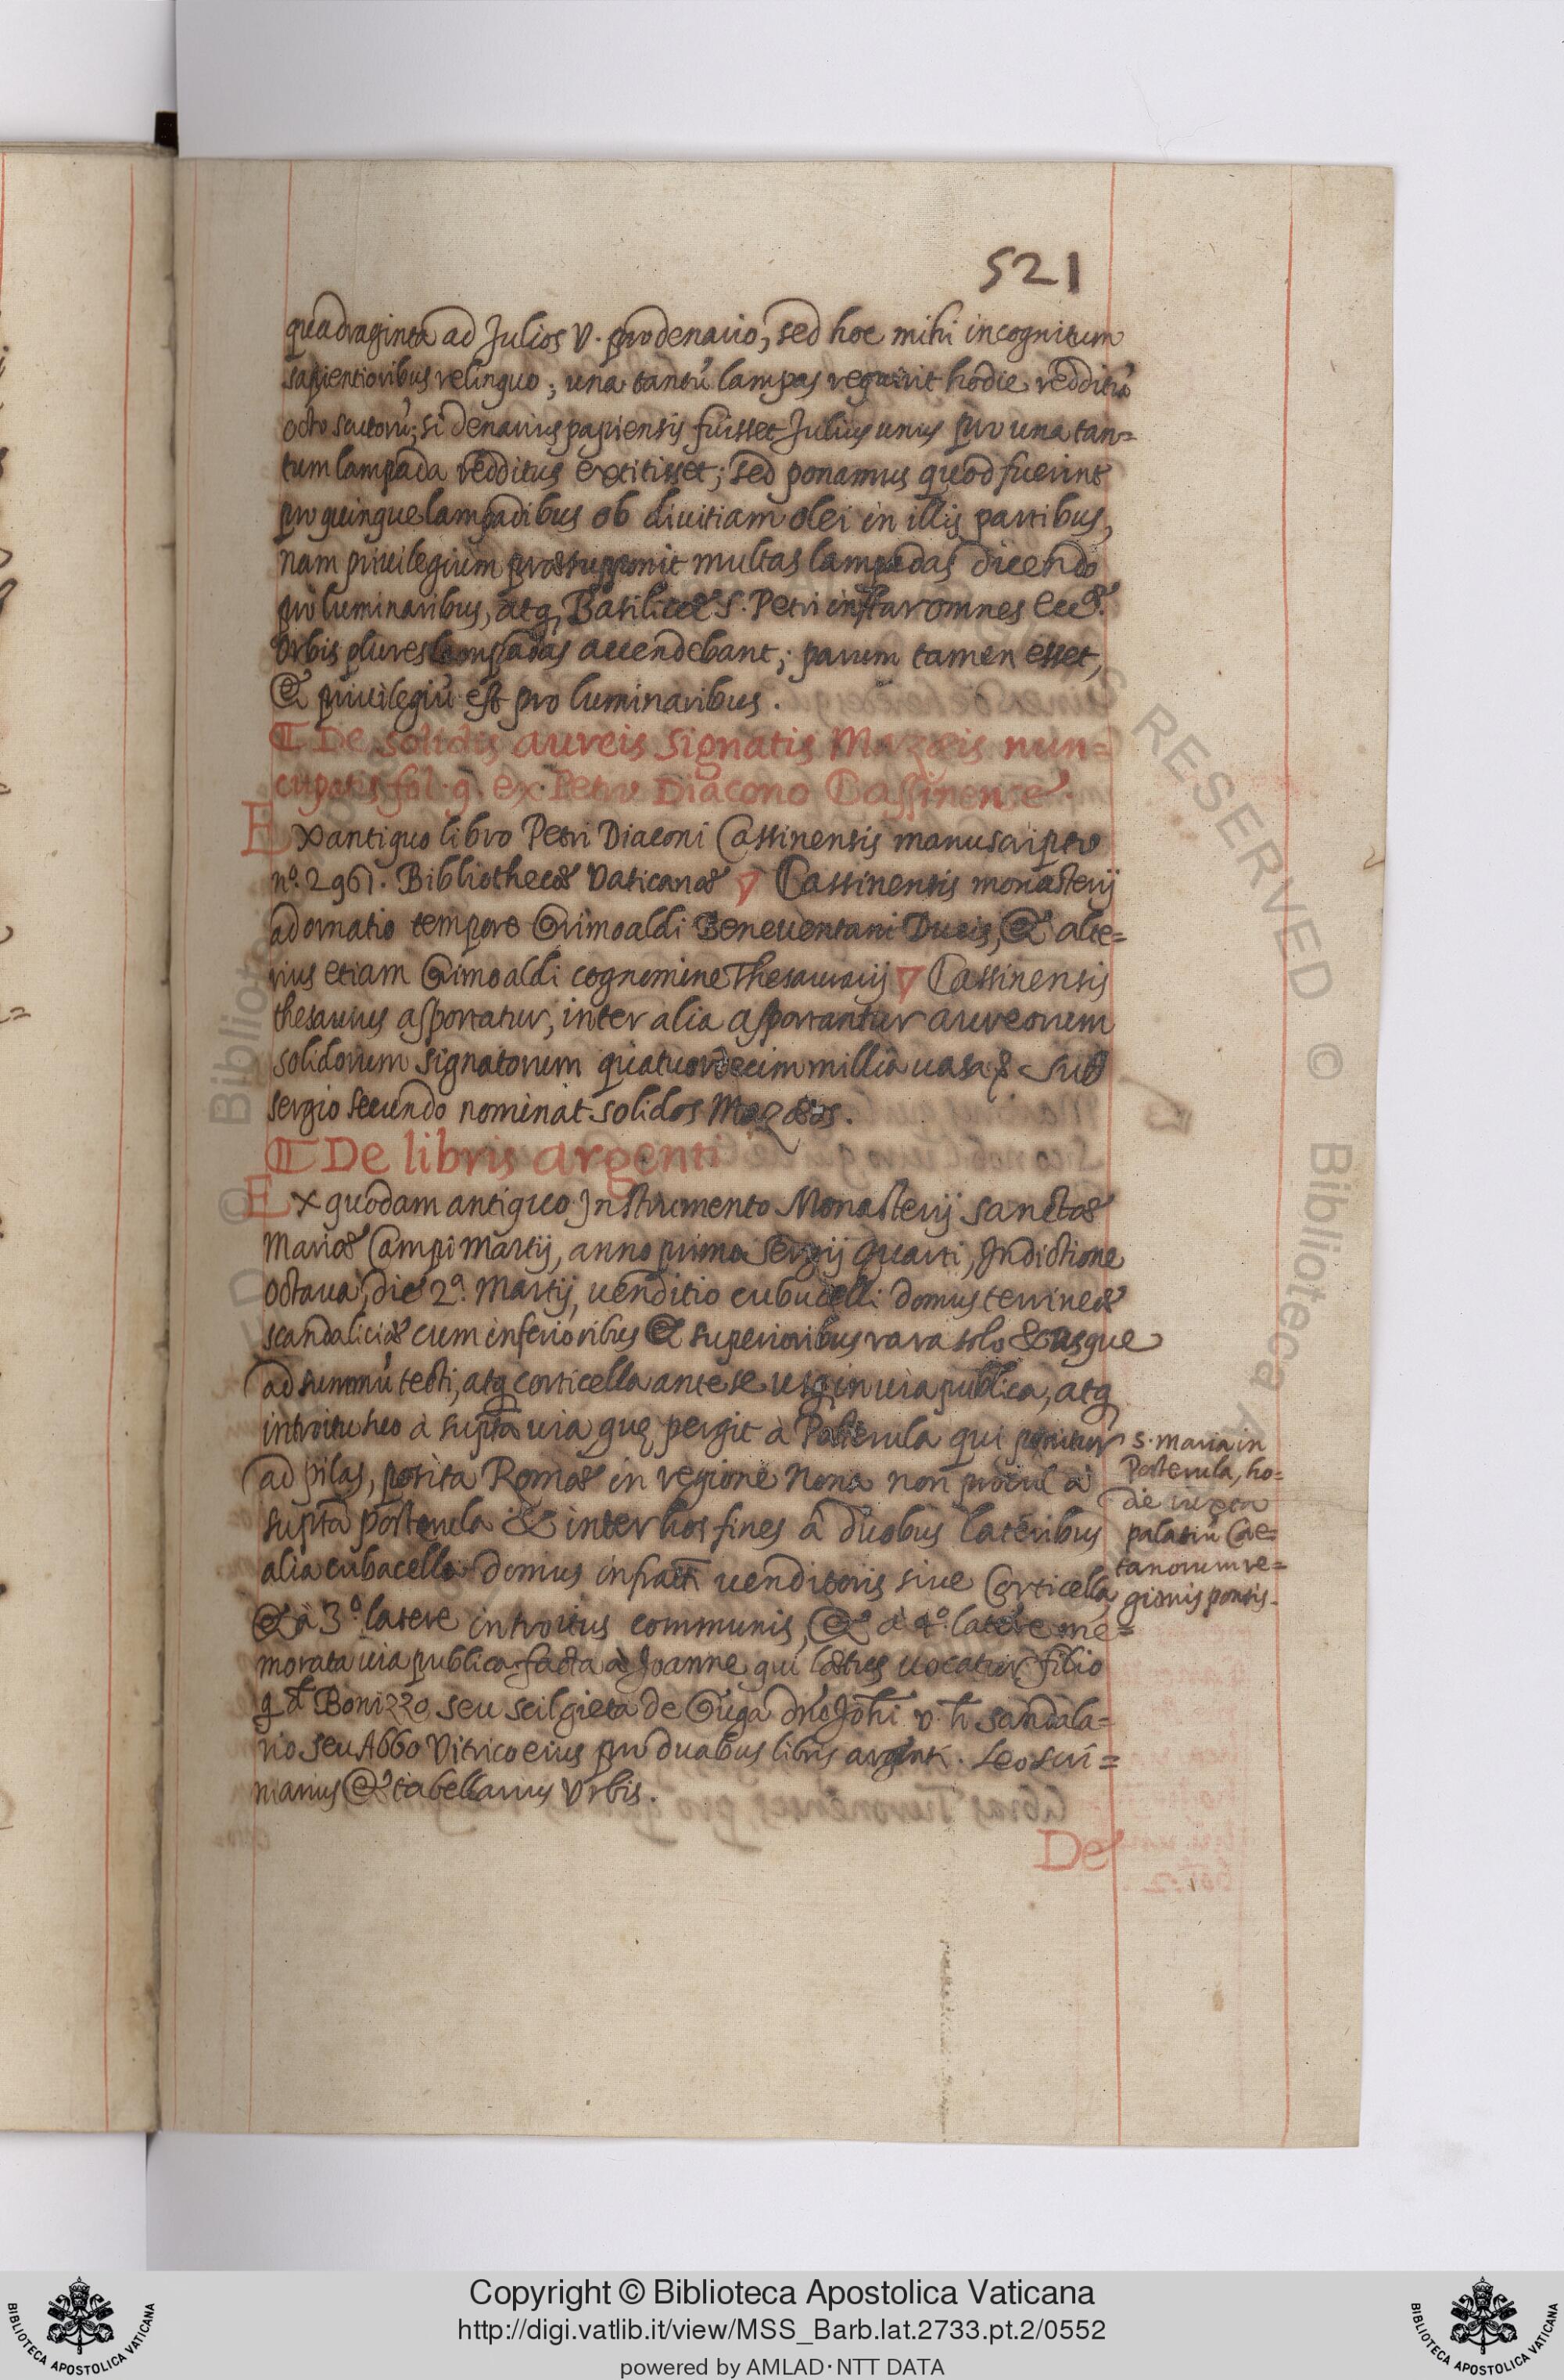 521
quadraginta ad Julios V. pro denario, sed hoc mihi incognitum
sapientioribus relinquo; una tantũ lampas requirit hodie redditũ
octo scutorũ; si denarius papiensis fuisset Julius unus pro una tan=
tum lampada redditus extitisset; sed ponamus quod fuerint
pro quinque lampadibus ob divitiam olei in illis partibus,
nam privilegium præsupponit multas lampadas dicendo
pro luminaribus, atq, Basilicæ S. Petri instar omnes
Orbis plures lampadas accendebant; parum tamen esset,
& privilegiũ est pro luminaribus.
De solidis aureis signatis Mazæis nun=
cupatis fol. 9. ex Petro Diacono Cassinense.
Ex antiquo libro Petri Diaconi Cassinensis manuscripto
nº. 2961. Bibliothecæ Vaticanæ Cassinensis monasterij
adornatio tempore Grimoaldi Beneventani Ducis, & alte=
rius etiam Grimoaldi cognomine Thesaurarij Cassinensis
thesaurus asportatur, inter alia asportantur aureorum
solidorum signatorum quatuordecim millia vasa & sub
sergio secundo nominat solidos Mazæos.
De libris argenti
Ex quodam antiquo Instrumento Monasterij sanctæ
Mariæ Campi Martij, anno primo Sergij Quarti, Indictione
octava, die 2ª. Martij, venditio cubucelli domus terrineæ
scandaliciæ cum inferioribus & superioribus a solo & usque
ad summũ tecti, atq corticella ante se usq in via publica, atq
introitu suo à supta via quę pergit à Posterula qui ponitur
ad pilas, posita Romæ in regione Nona non procul à
supta posterula & inter hos fines à duobus lateribus
alia cubacella domus venditoris sive Corticella,
& à 3º. latere introitus communis, & à 4º. latere me=
morata via publica facta à Joanne qui lætus vocatur filio
Bonizzo seu de v. h. sandala=
rio seu Abbo Vitrico eius pro duabus libris argenti. Leo scri=
niarius & tabellarius Urbis.
De
S. Maria in
Posterula, ho=
die iuxta
palatiũ Cae=
tanorum re=
gionis pontis.
Copyright © Biblioteca Apostolica Vaticana
http://digi.vatlib.it/view/MSS_Barb.lat.2733.pt.2/0552
powered by AMLAD·NTT DATA
BIBLIOTECA APOSTOLICA VATICANA
BIBLIOTECA APOSTOLICA VATICANA